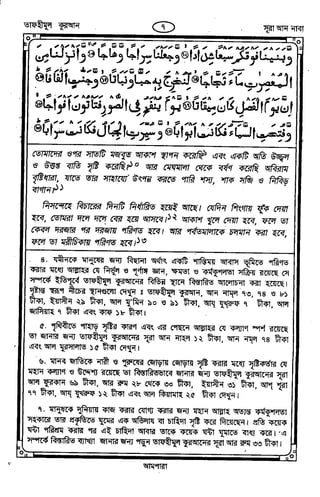 তাফহীমুল কুরআন
৭
সূরা আন নাবা
وَبَنَيْنَا فَوْقَكُمْ سَبْعًا شِدَادًا ۝ وَجَعَلْنَا سِرَاجًا وَهَّاجًا ۝ وَأَنْزَلْنَا مِنَ
الْمُعْصِرٰتِ مَاءً ثَجَّاجًا ۝ لِنُخْرِجَ بِهٖ حَبًّا وَنَبَاتًا ۝ وَجَنّٰتٍ أَلْفَافًا ۝
إِنَّ يَوْمَ الْفَصْلِ كَانَ مِيقَاتًا ۝ يَوْمَ يُنْفَخُ فِي الصُّورِ فَتَأْتُونَ أَفْوَاجًا ۝
وَفُتِحَتِ السَّمَاءُ فَكَانَتْ أَبْوَابًا ۝ وَسُيِّرَتِ الْجِبَالُ فَكَانَتْ سَرَابًا ۝
তোমাদের ওপর সাতটি মজবুত আকাশ স্থাপন করেছি এবং একটি অতি উজ্জ্বল
ও উত্তপ্ত বাতি সৃষ্টি করেছি।১০ আর মেঘমালা থেকে বর্ষণ করেছি অবিরাম
বৃষ্টিধারা, যাতে তার সাহায্যে উৎপন্ন করতে পারি শস্য, শাক সব্জি ও নিবিড়
বাগান।১১
নিসন্দেহে বিচারের দিনটি নির্ধারিত হয়েই আছে। যেদিন শিংগায় ফুঁক দেয়া
হবে, তোমরা দলে দলে বের হয়ে আসবে।১২ আকাশ খুলে দেয়া হবে, ফলে তা
কেবল দরজার পর দরজায় পরিণত হবে। আর পর্বতমালাকে চলমান করা হবে,
ফলে তা মরীচিকায় পরিণত হবে।১৩
৪. যমীনকে মানুষের জন্য বিছানা অর্থাৎ একটি শান্তিময় আবাস ভূমিতে পরিণত
করার মধ্যে আল্লাহর যে নির্ভুল ও পূর্ণাঙ্গ জ্ঞান, ক্ষমতা ও কর্মকুশলতা সক্রিয় রয়েছে সে
সম্পর্কে ইতিপূর্বে তাফহীমুল কুরআনের বিভিন্ন স্থানে বিস্তারিত আলোচনা করা হয়েছে।
দৃষ্টান্ত স্বরূপ নীচের স্থানগুলো দেখুন : তাফহীমুল কুরআন, আন নামল ৭৩, ৭৪ ও ৮১
টীকা, ইয়াসীন ২৯ টীকা, আল মু'মিন ৯০ ও ৯১ টীকা, আয যুখরুফ ৭ টীকা, আল
জাসিয়াহ ৭ টীকা এবং কাফ ১৮ টীকা।
৫. পৃথিবীতে পাহাড় সৃষ্টির কারণ এবং এর পেছনে আল্লাহর যে কল্যাণ স্পর্শ রয়েছে
তা জানার জন্য তাফহীমুল কুরআনের সূরা আন নাহল ১২ টীকা, আন নামল ৭৪ টীকা
এবং আল মুরসালাত ১৫ টীকা দেখুন।
৬. মানব জাতিকে নারী ও পুরুষের জোড়ায় জোড়ায় সৃষ্টি করার মধ্যে সৃষ্টিকর্তার যে
মহান কল্যাণ ও উদ্দেশ্য রয়েছে তা বিস্তারিতভাবে জানার জন্য তাফহীমুল কুরআনের সূরা
আল ফুরকান ৬৯ টীকা, আর রূম ২৮ থেকে ৩০ টীকা, ইয়াসীন ৩১ টীকা, আশ্ শূরা
৭৭ টীকা, আয্ যুখরুফ ১২ টীকা এবং আল কিয়ামাহ ২৫ টীকা দেখুন।
৭. মানুষকে দুনিয়ায় কাজ করার যোগ্য করার জন্য মহান আল্লাহ অত্যন্ত কর্মকুশলতা
সহকারে তার প্রকৃতিতে ঘুমের এক অভিলাষ বা চাহিদা সৃষ্টি করে দিয়েছেন। প্রতি কয়েক
ঘন্টা পরিশ্রম করার পর এই চাহিদা আবার তাকে কয়েক ঘন্টা ঘুমাতে বাধ্য করে। এ
সম্পর্কে বিস্তারিত ব্যাখ্যা জানার জন্য পড়ুন তাফহীমুল কুরআনের সূরা আর রূম ৩৩ টীকা।
আমপারা